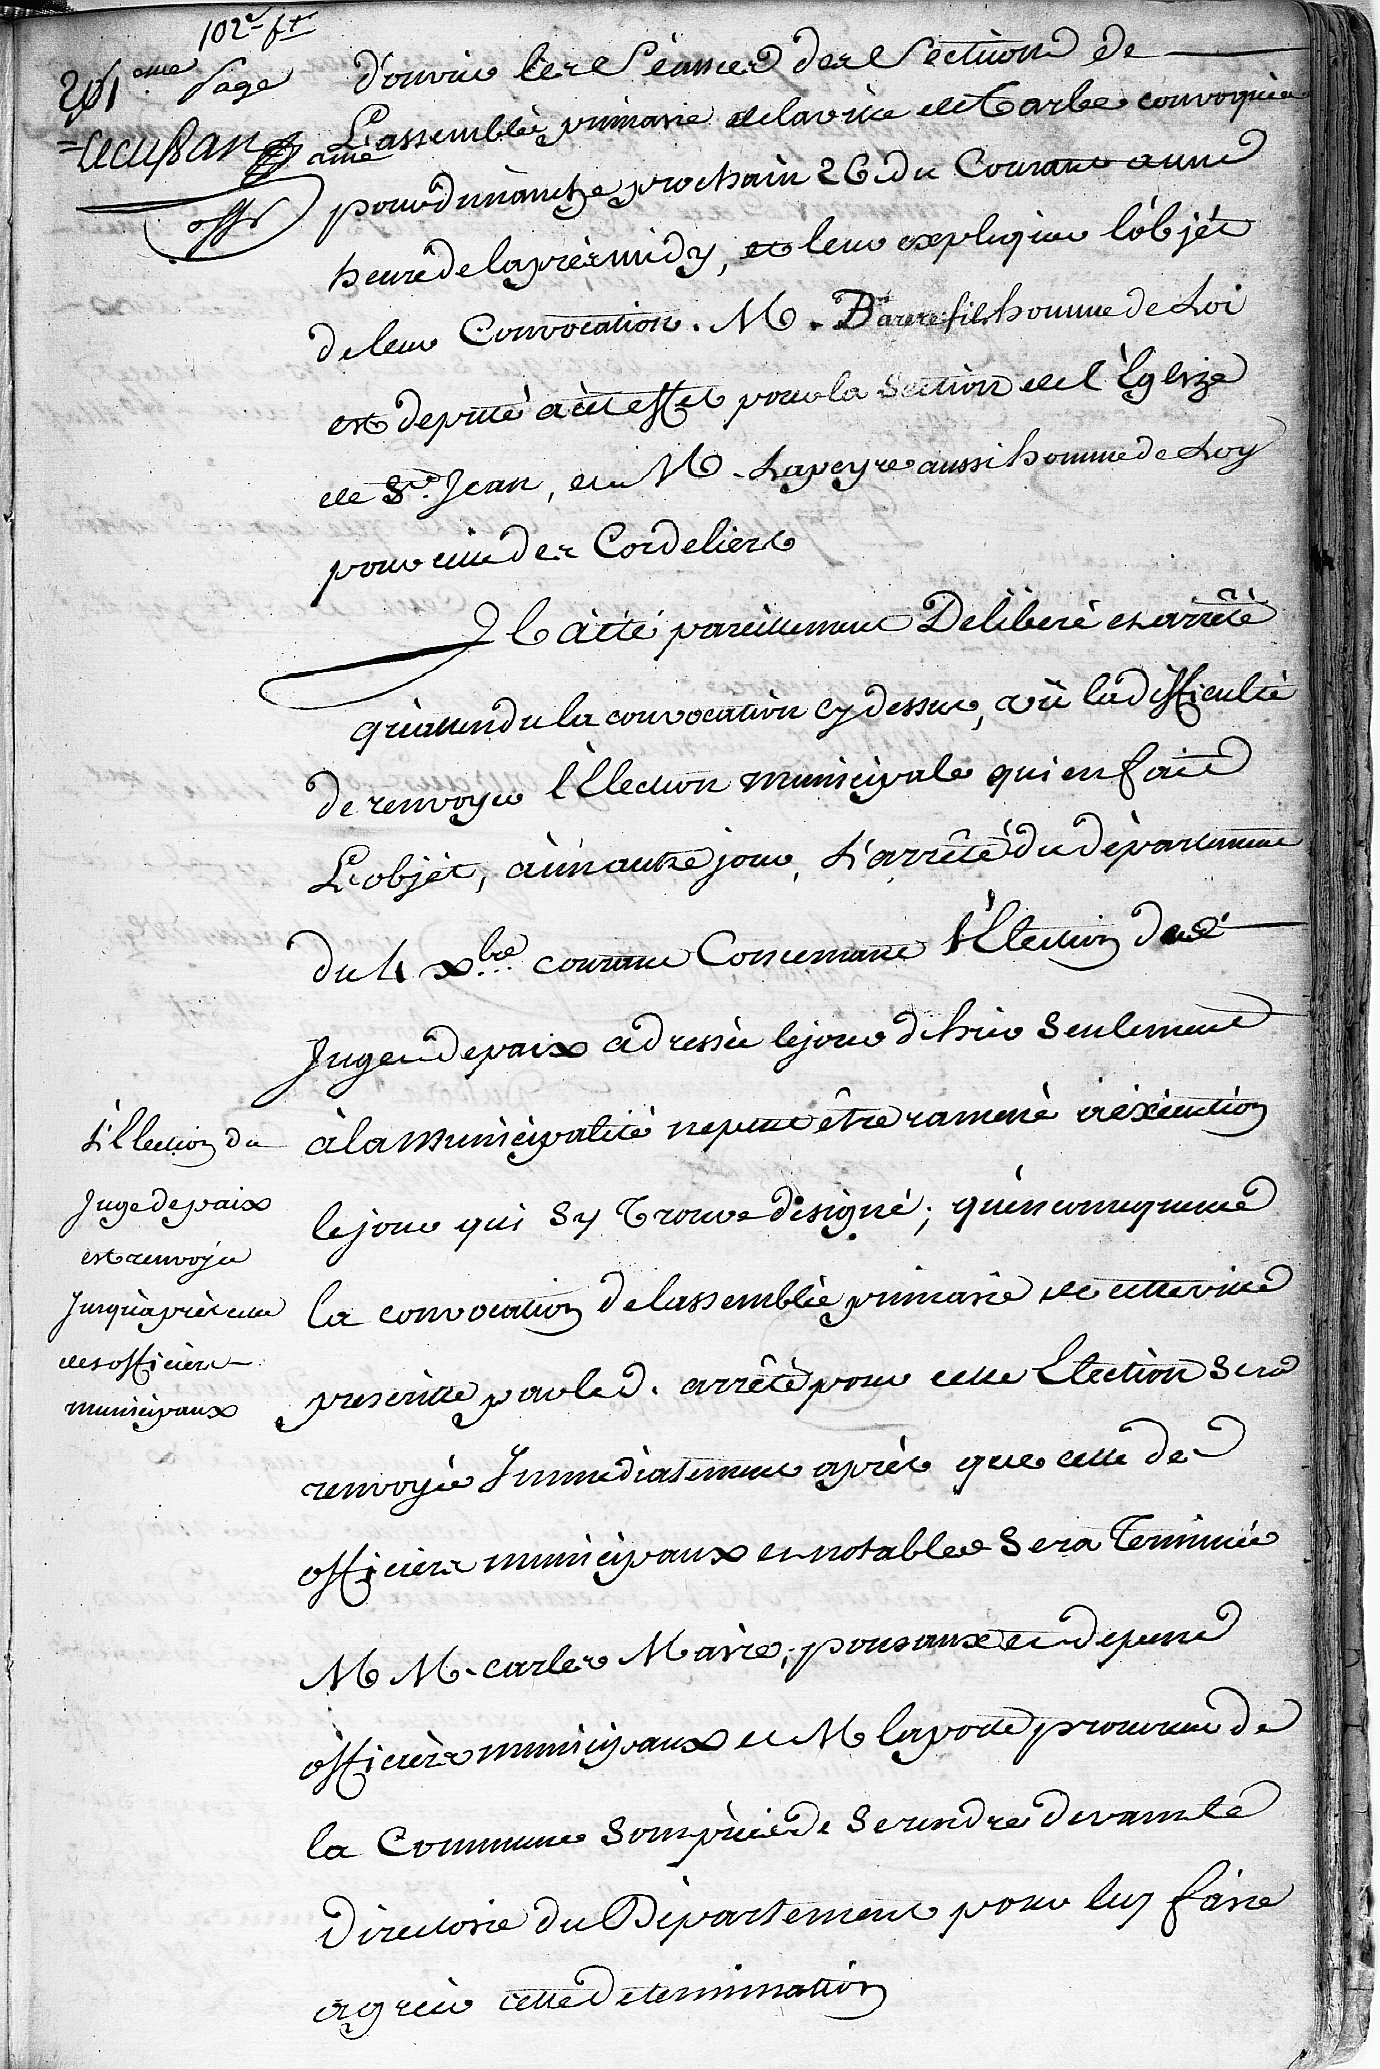 102e ft
201eme page
offr
d'ouvrir les Séances des Sections de
L'assemblée primaire de la ville de Tarbe convoquée
pour dimanche prochain 26. du Courant a une
heure de laprés midy, et leur expliquer l'objét
de leur Convocation. M. Barere fils homme de Loi
est deputé à cet effet pour la Section de l'Eglize
de St. Jean, et M. Lapeyre aussi homme de Loy
pour celle des Cordeliers
Il à été pareillement Déliberé et arrêté
qu'attendu la convocation cy dessus, vû la difficulté
de renvoyer l'Election municipale qui en fait
L'objét, à un autre jour, L'arrêté du département
du 4 xbre. courant Concernant l'Election des
Juges de paix adressée le jour d'hier seulement
à la Municipalité ne peut être ramené à éxécution
le jour qui s'y trouve désigné; qu'en consequence
la convocation de lassemblée primaire de cette ville
prescritte par led. arrêté pour cette Election sera
renvoyée Immediatement aprés que celle de
officiers municipaux et notables sera Terminée
M M. carles Maire, pousaux et depene
officiers municipaux et M laporte procureur de
la Commune sont priés de se rendre devant le
Directoire du Département pour luy faire
agréer cette determination
L'Election du
Juge de paix
est renvoyée
Jusqu'aprés celle
des officiers
municipaux